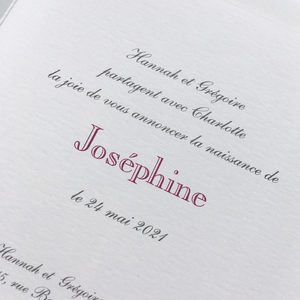 Hannah et Grégoire
partagent avec Charlotte
la joie de vous annoncer la naissance de
Joséphine
le 24 mai 2021
Hannah et Grégoire
rue